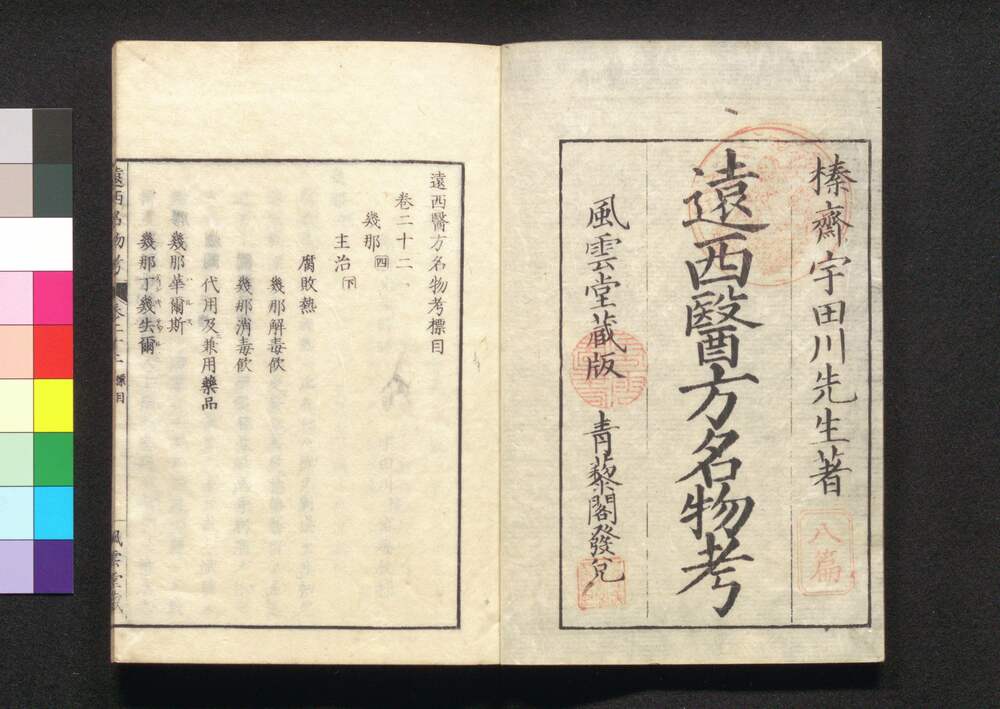 榛齋宇田川先生著
八篇
遠西醫方名物考
風雲堂藏版
青藜閣發兌
遠西醫方名物考標目
卷二十二
幾那 四
主治 下
腐敗熱
幾那解毒飲
幾那消毒飲
代用及兼用藥品
幾那華爾斯
幾那丁幾生爾
遠西名物考
卷二十二 標目
風雲堂藏